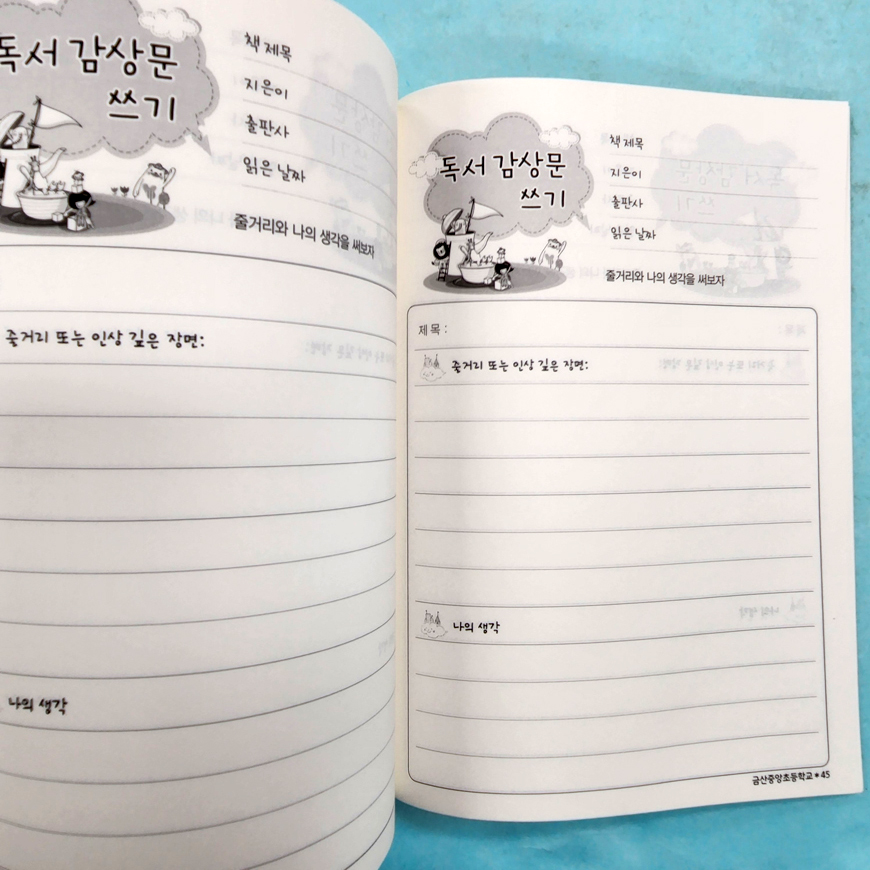 독서 감상문
쓰기
책 제목
지은이
출판사
읽은 날짜
줄거리와 나의 생각을 써보자
줄거리 또는 인상 깊은 장면:
나의 생각
독서 감상문
쓰기
책 제목
지은이
출판사
읽은 날짜
줄거리와 나의 생각을 써보자
제 목 :
줄거리 또는 인상 깊은 장면:
나의 생각
금산중앙초등학교 * 45